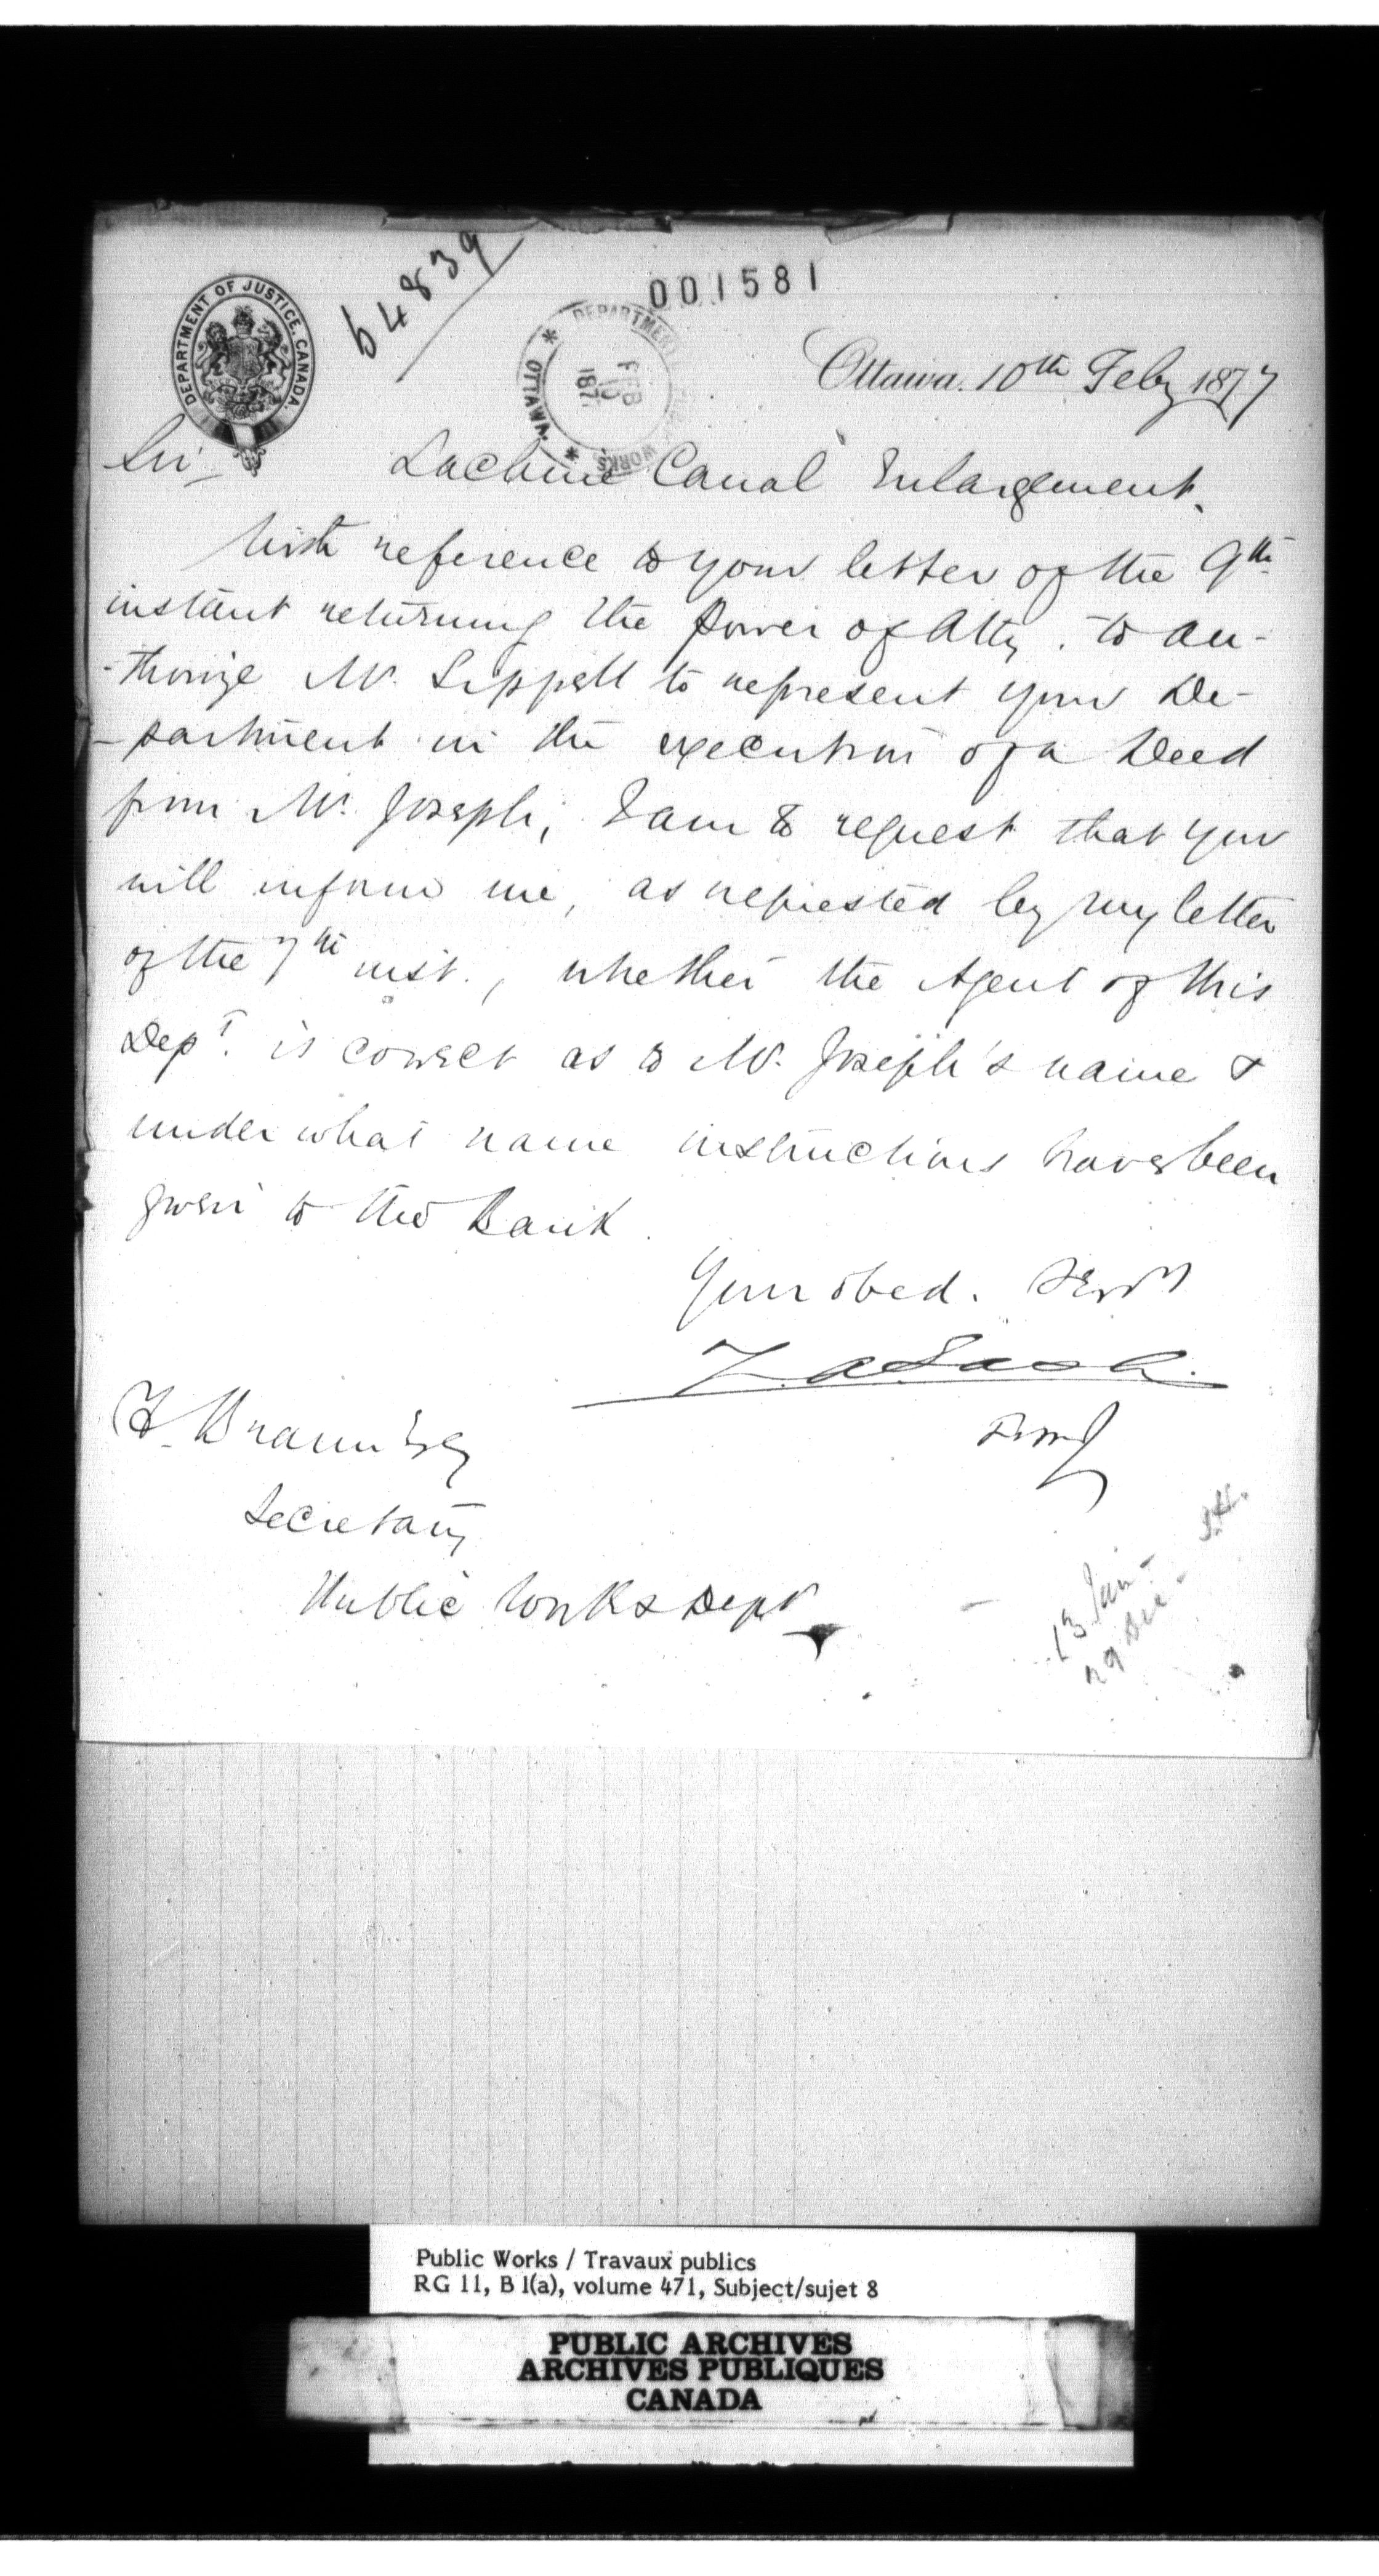 64839
001581
DEPARTMENT OF JUSTICE, CANADA.
DEPARTMENT WORKS
OTTAWA
FEB
10
187
Ottawa. 10th Feby 1877
Sir
Lachine Canal Enlargement.
With reference to your letter of the 9th
instant returning the Power of Atty. to au-
-thorize Mr. Sippell to represent your De-
-partment in the execution of a Deed
from Mr. Joseph, I am to request that you
will inform me, as requested by my letter
of the 7th inst., whether the Agent of this
Dept. is correct as to Mr. Joseph's name &
under what name instructions have been
given to the Bank.
Your obed. Servt
Z A Lash.
F. Braun Esq
Secretary
Public Works Dept
13 Jan -
29 Dec -
Public Works / Travaux publics
RG 11, B 1(a), volume 471, Subject/sujet 8
PUBLIC ARCHIVES
ARCHIVES PUBLIQUES
CANADA